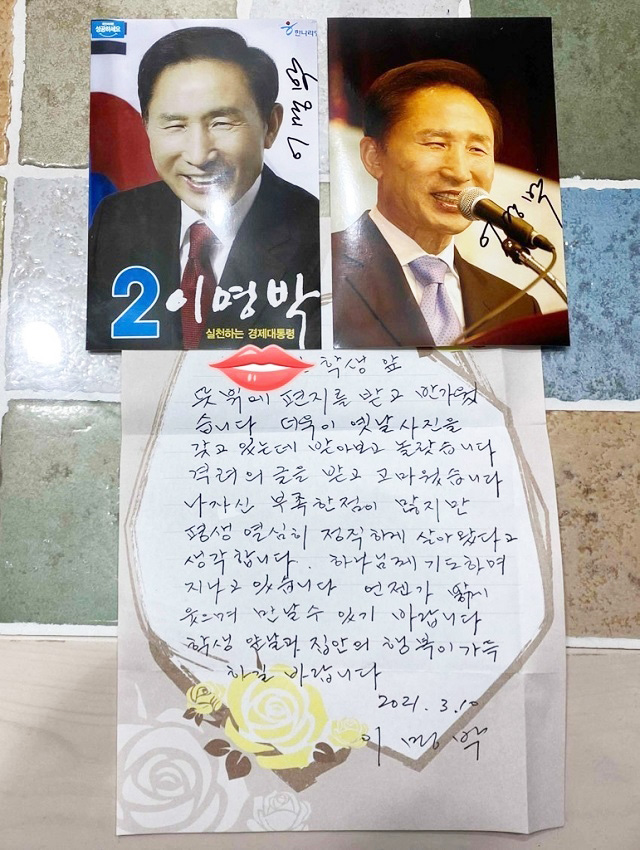 성공하세요
한나라
2 이명박
실천하는 경제대통령
이명박
학생 앞
뜻밖에 편지를 받고 반가웠
습니다 더욱이 옛날 사진을
갖고 있는데 받아보고 놀랐습니다
격려의 글을 받고 고마웠습니다
나 자신 부족한 점이 많지만
평생 열심히 정직하게 살아왔다고
생각합니다. 하나님께 기도하며
지나고 있습니다 언젠가
웃으며 만날 수 있기 바랍니다
학생 앞날과 집안의 행복이 가득
하길 바랍니다
2021. 3. 10
이명박